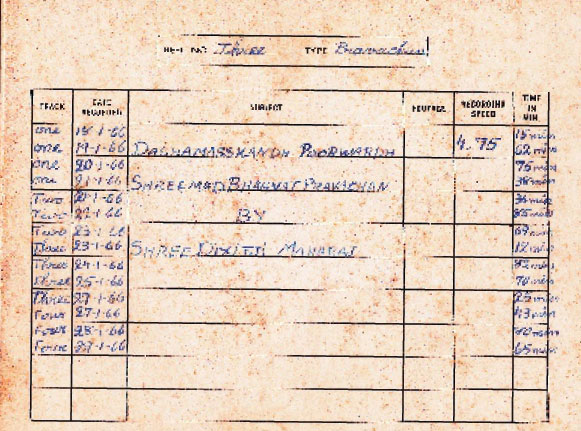 REEL NO. Three TYPE Pravachan
TRACK DATE RECORDED SUBJECT FOOTAGE RECORDING SPEED TIME IN MIN.
One 18-1-66 15 min
One 19-1-66 DASHAMASSKANDH POORWARDH 4.75 62 min
One 20-1-66 75 min
One 21-1-66 SHREEMAD BHAGWAT PRAVACHAN 38 min
Two 21-1-66 36 min
Two 22-1-66 BY 85 min
Two 23-1-66 69 min
Three 23-1-66 SHREE DIXITJI MAHARAJ 12 min
Three 24-1-66 82 min
Three 25-1-66 70 min
Three 27-1-66 25 min
Four 27-1-66 43 min
Four 28-1-66 min
Four 29-1-66 65 min